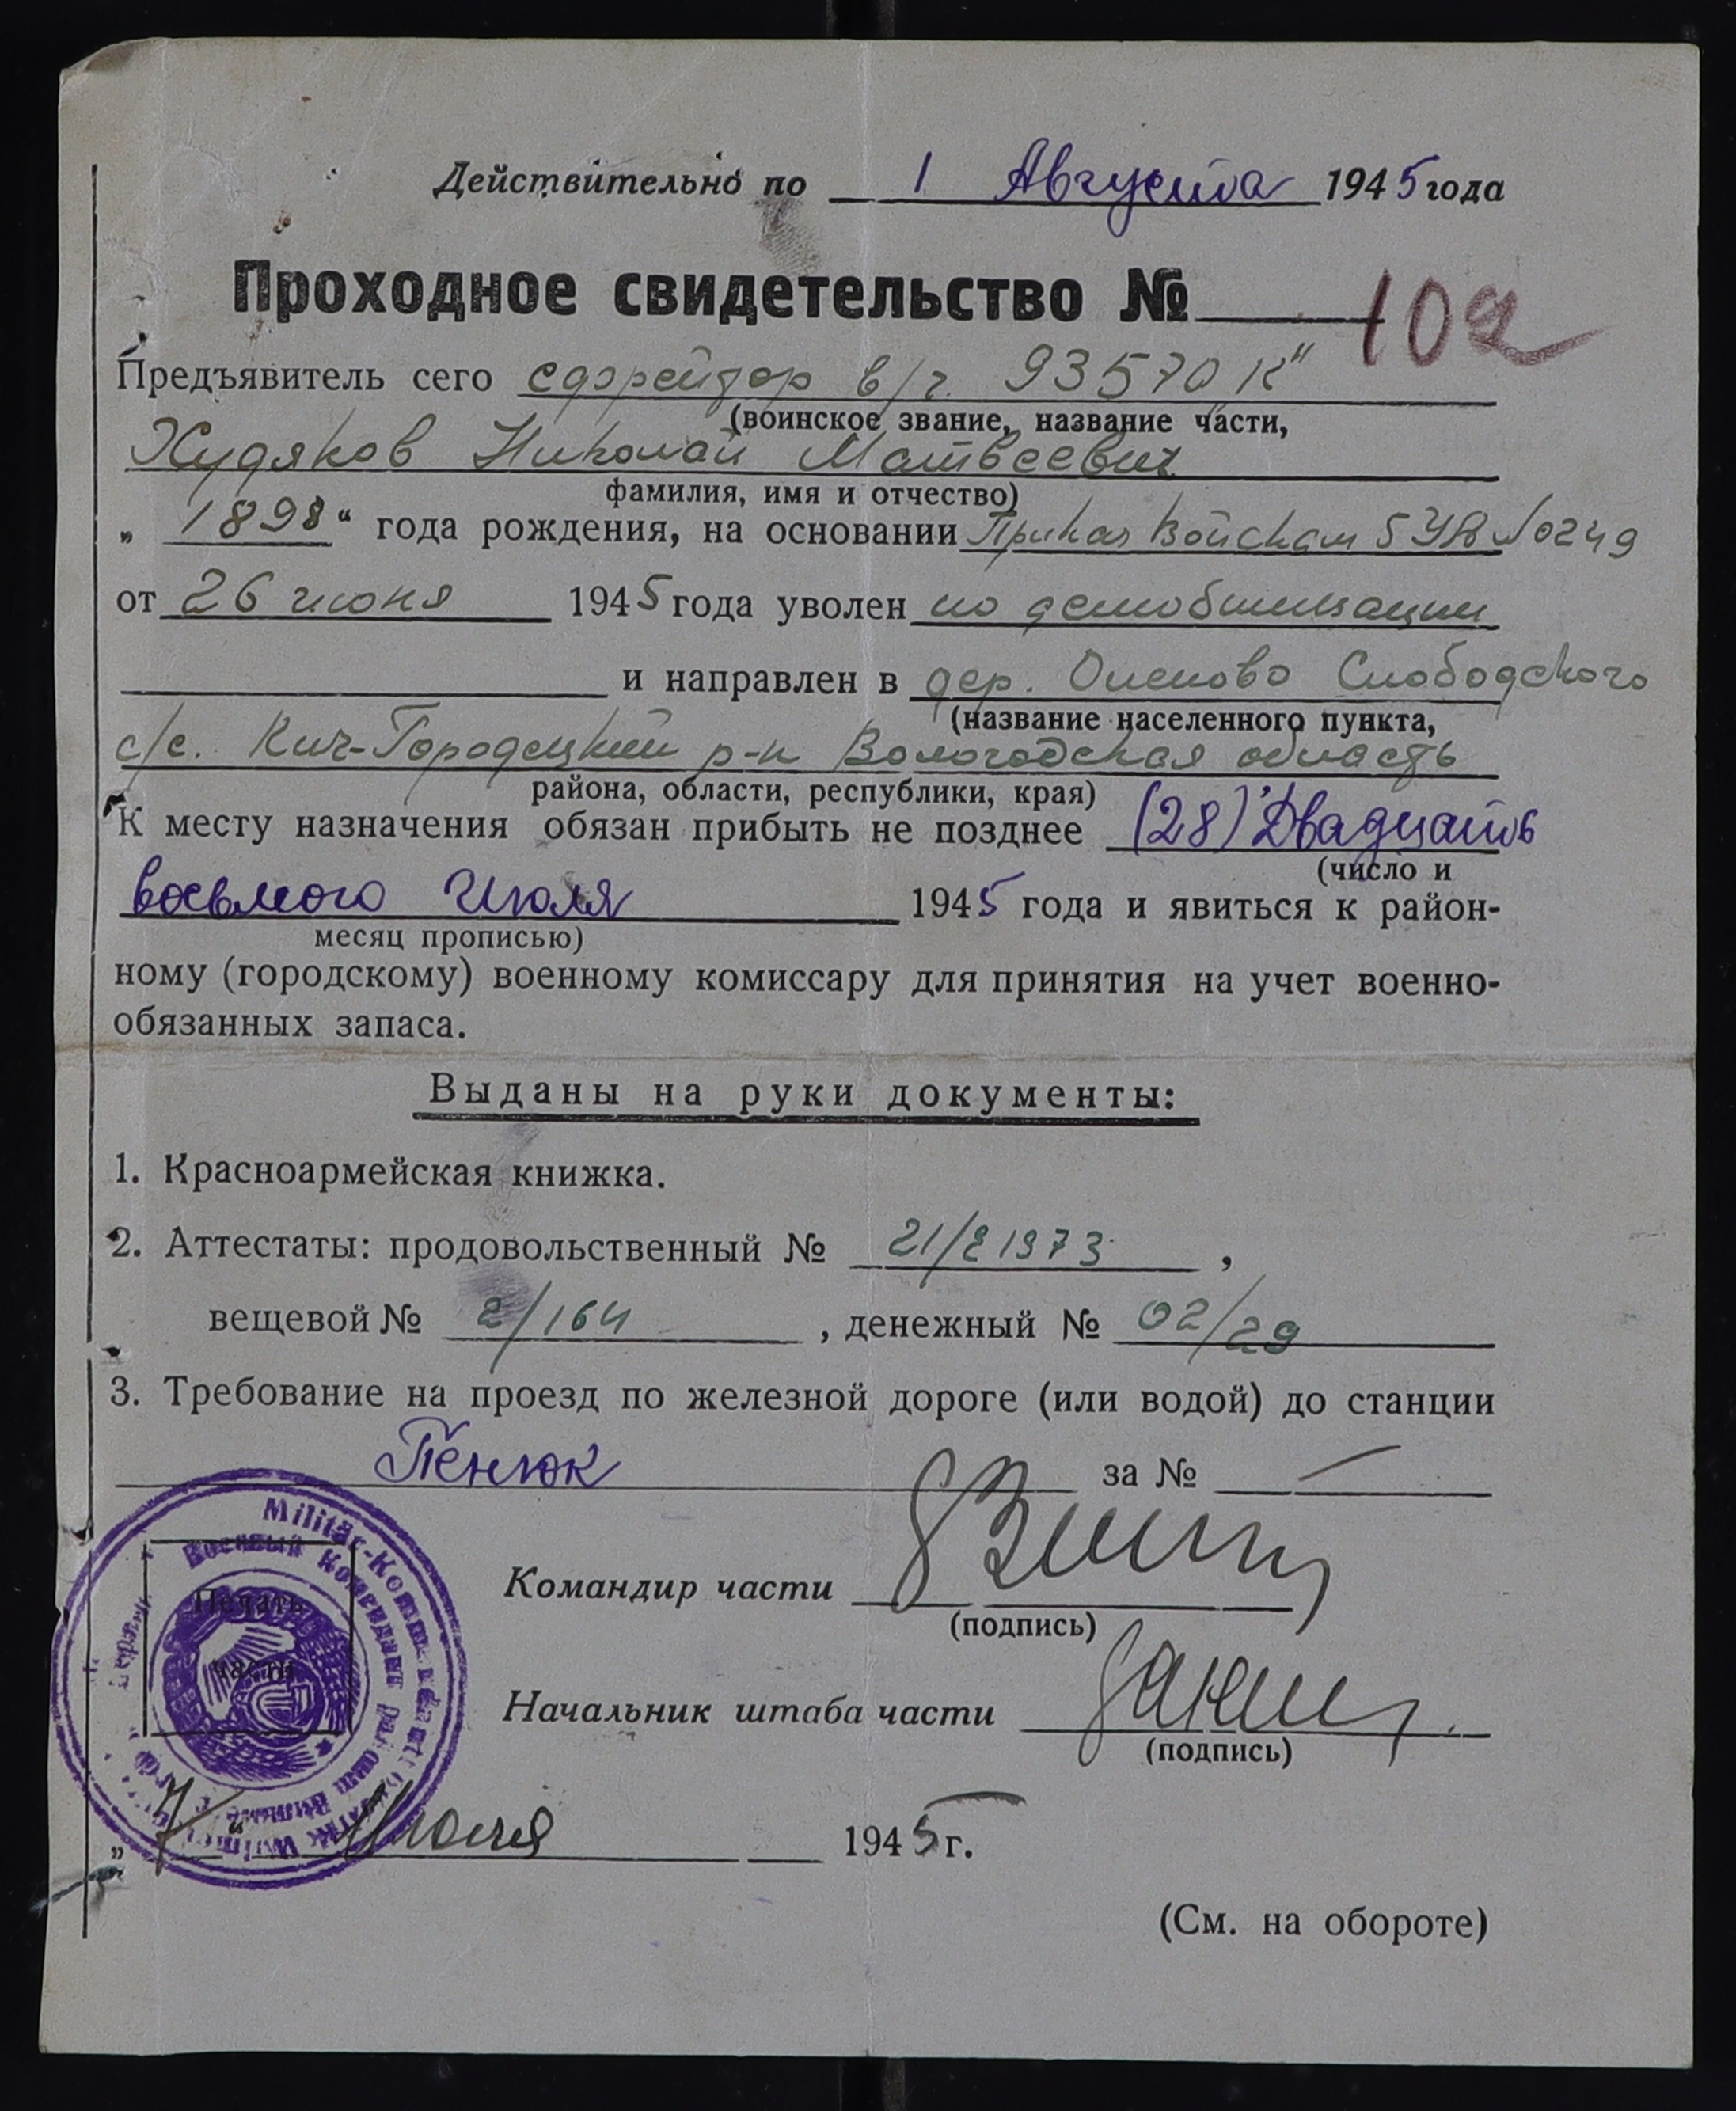 Действительно по 1 Августа 1945 года
Проходное свидетельство № 102
Предъявитель сего ефрейтор в/ч. 93570 К"
(воинское звание, название части,
Худяков Николай Матвеевич
фамилия, имя и отчество)
„ 1898 “ года рождения, на основании Приказ Войскам 5 УА №0249
от 26 июня 1945 года уволен по демобилизации
и направлен в дер. Оленово Слободского
(название населенного пункта,
с/с. Кич-Городецкий р-н Вологодская область
района, области, республики, края)
К месту назначения обязан прибыть не позднее (28) Двадцать
(число и
восьмого Июля 1945 года и явиться к район-
месяц прописью)
ному (городскому) военному комиссару для принятия на учет военно-
обязанных запаса.
Выданы на руки документы:
1. Красноармейская книжка.
2. Аттестаты: продовольственный № 21/21973,
вещевой № 2/164, денежный № 02/29
3. Требование на проезд по железной дороге (или водой) до станции
Пенюк за № —
Командир части
(подпись)
Начальник штаба части
(подпись)
Печать
части
Militär-Kommandant
Военный Комендант
„ 7 “ Июля 1945 г.
(См. на обороте)